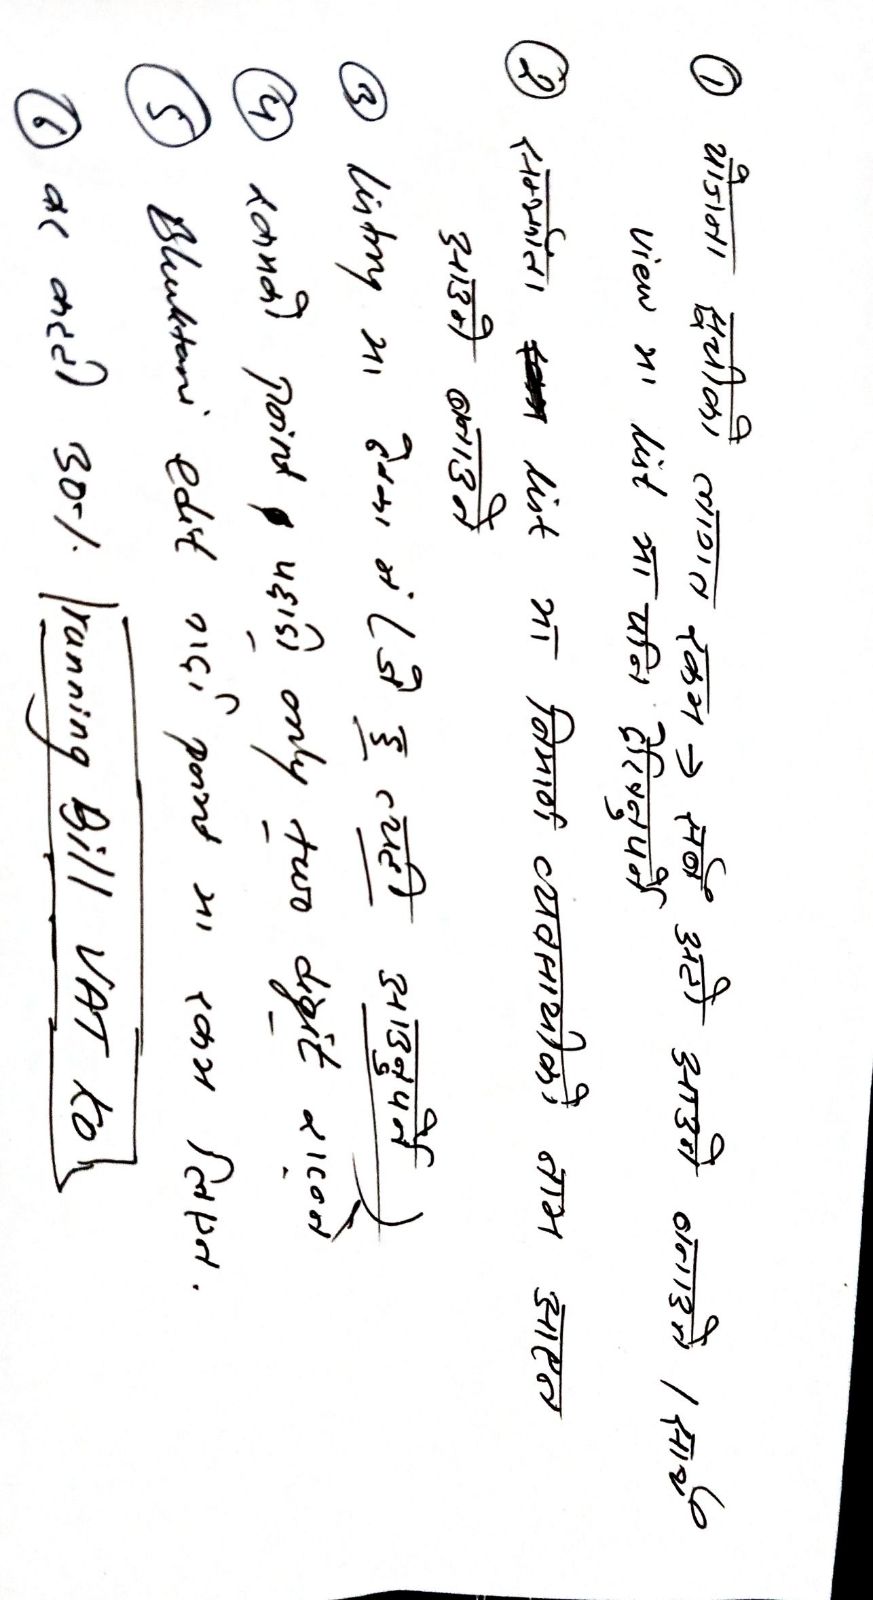 ① योजना सूचीको लागत रकम → सबै अटो आउने बनाउने । साथै
view मा list मा पनि देखिनुपर्ने
② सम्झौता list मा निमार्ण व्यवसायीको नाम आएन
आउने बनाउने
③ listing मा ठेक्का नं (जे हु त्यही आउनुपर्ने)
④ रकमको point पछाडी only two digit राख्ने
⑤ Bhuktani edit गर्दा point मा रकम लिएन.
⑥ कर कट्टी 30% running Bill VAT KO